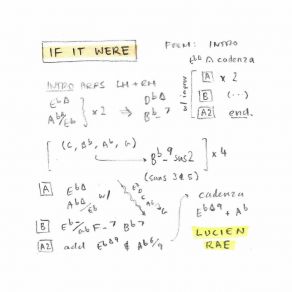 IF IT WERE
FORM: INTRO
EbΔ cadenza
A x 2
B (...)
A2 end.
w/ improv
INTRO ARPS LH + RH
EbΔ
Ab/Eb } x 2 ⇒ DbΔ
Bb-7
(C, Bb, Ab, G)
→ Bb-9 sus2 x 4
(sans 3 & 5)
A EbΔ
AbΔ/Eb w/ Eb
Ab
G
B Eb-/Gb F-7 Bb7
A2 add EbΔ9 & Ab6/9
cadenza
EbΔ9 + Ab
LUCIEN
RAE